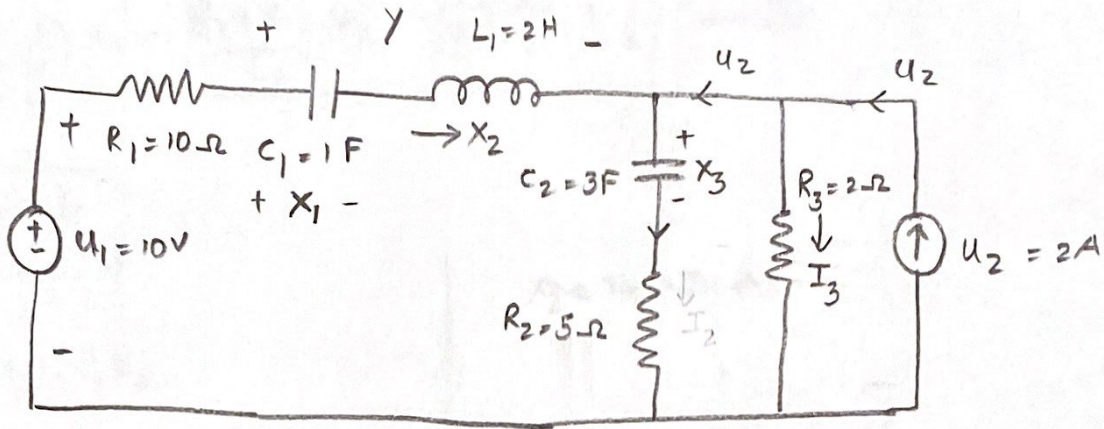 + Y L₁=2H -
u₂ u₂
+ R₁=10Ω C₁=1F → X₂
+ X₁ -
C₂=3F + X₃ -
R₃=2Ω
↓ I₃
+ - u₁=10V
↑ u₂ = 2A
R₂=5Ω ↓ I₂
-